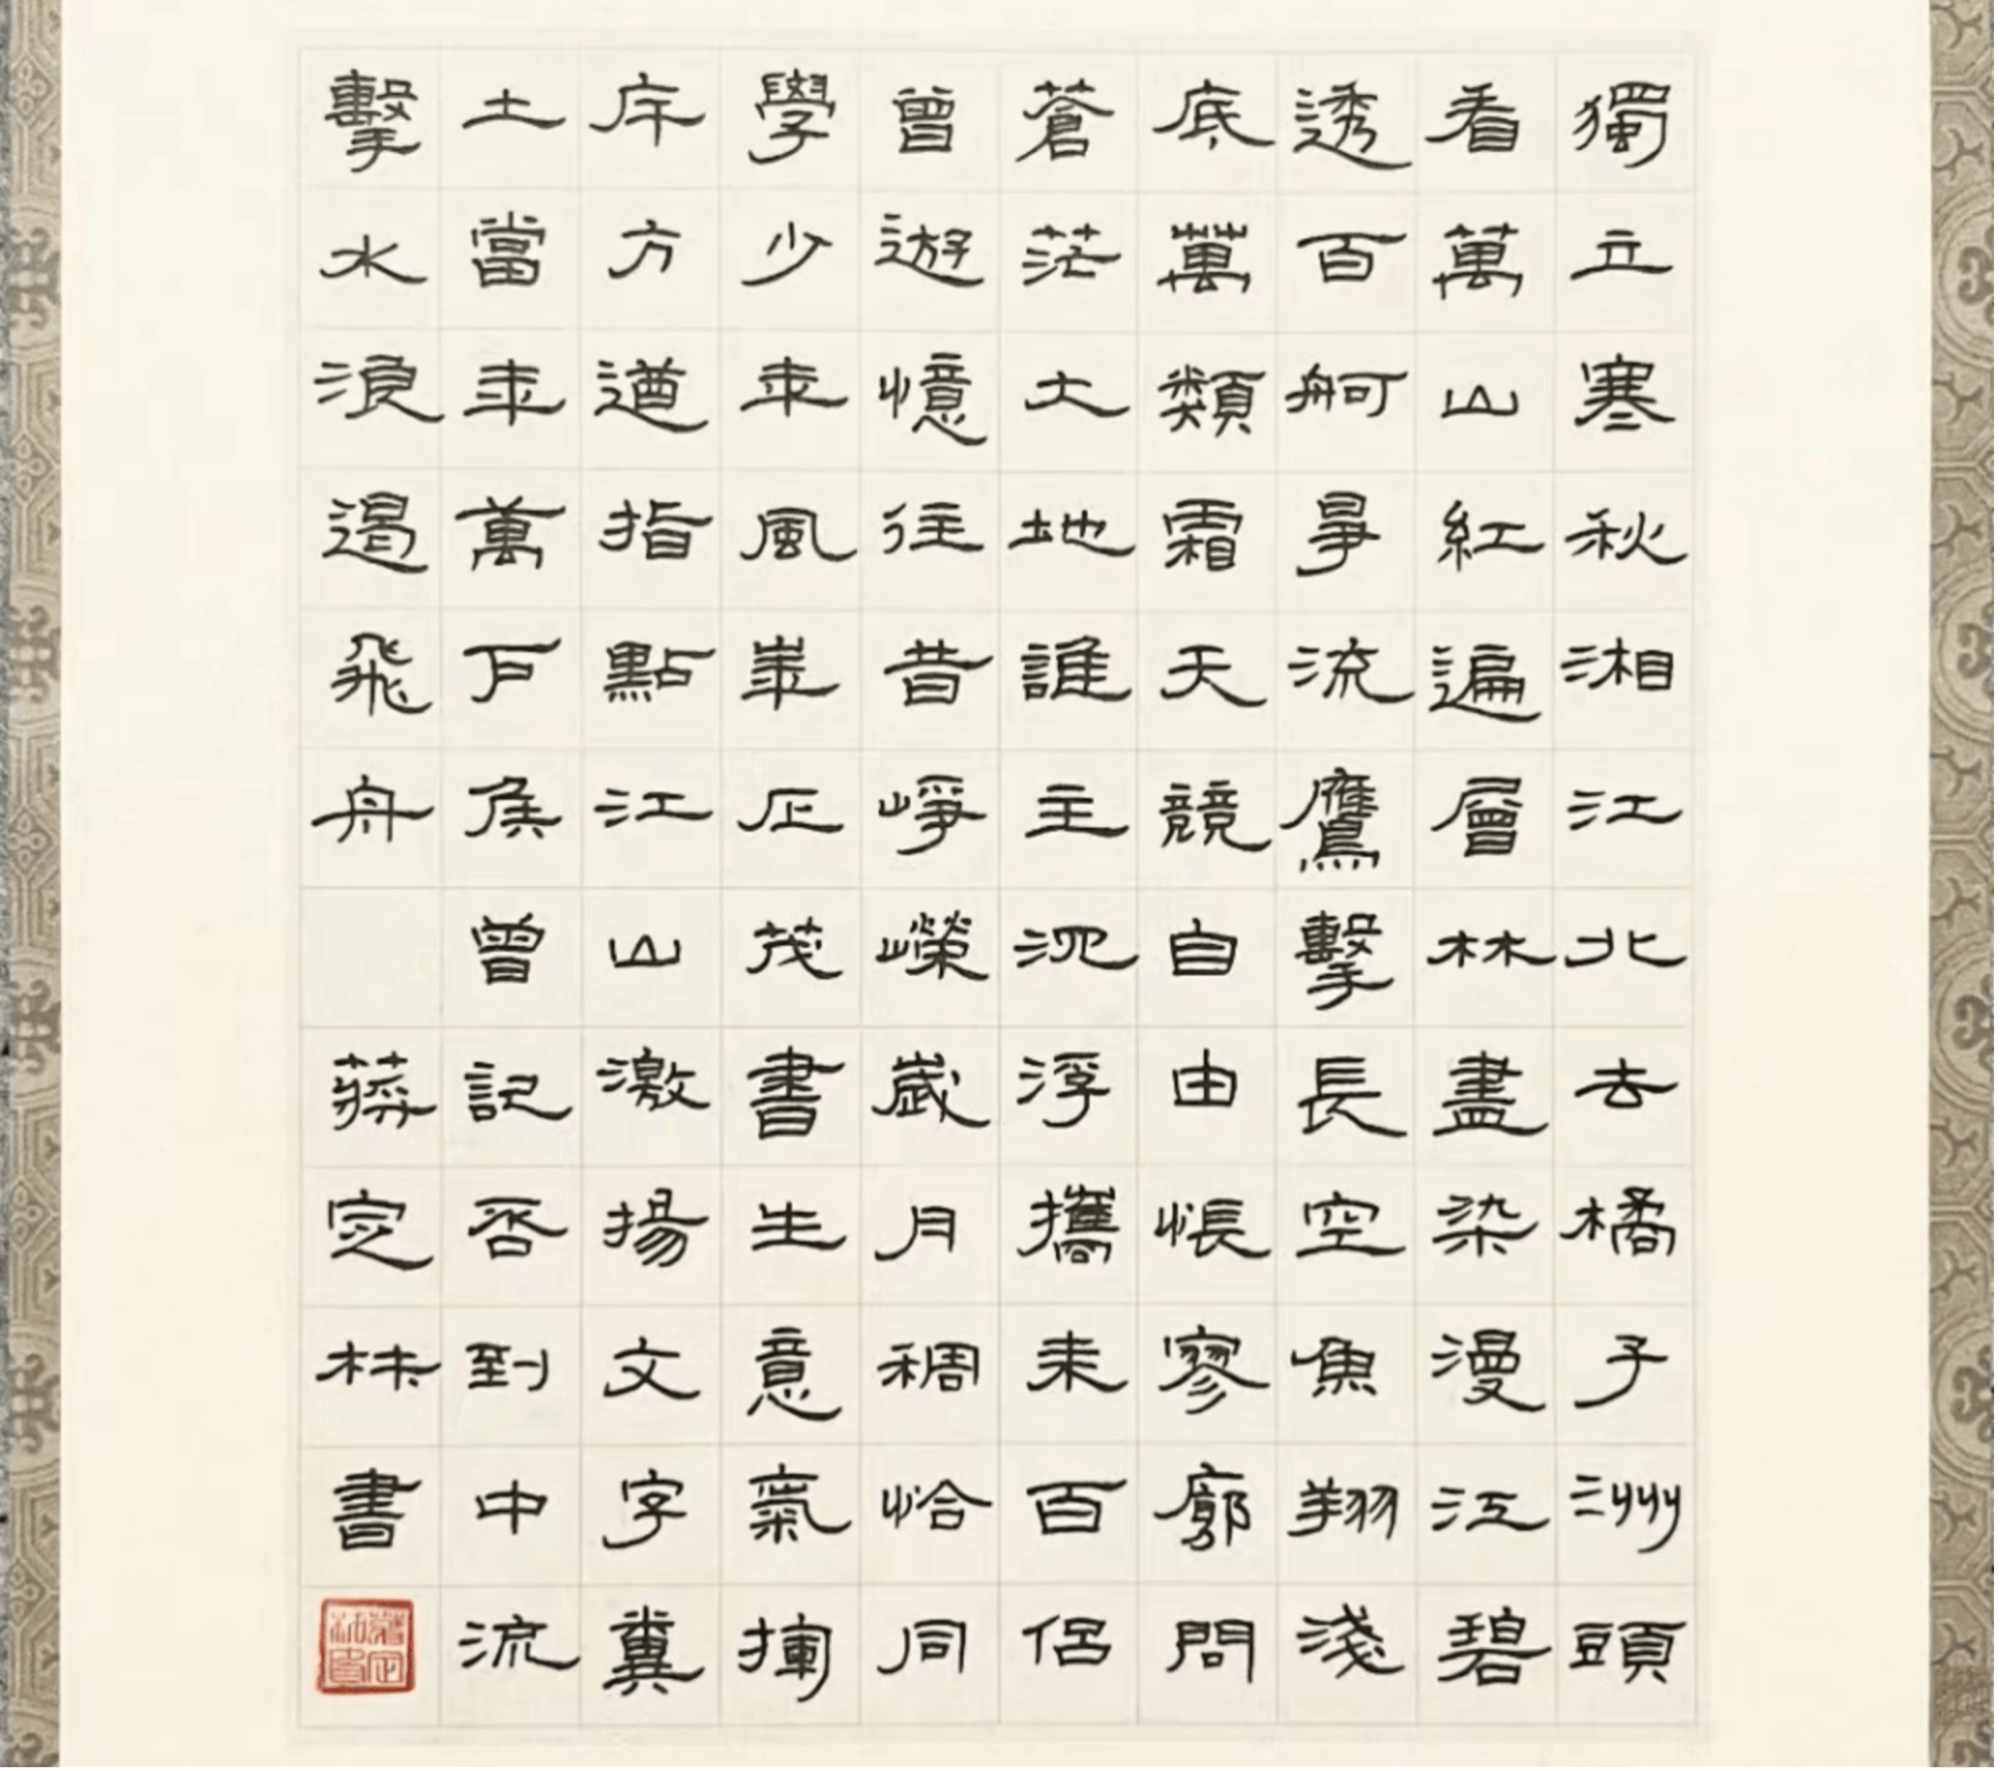 獨立寒秋湘江北去橘子洲頭
看萬山紅遍層林盡染漫江碧
透百舸爭流鷹擊長空魚翔淺
底萬類霜天競自由悵寥廓問
蒼茫大地誰主沉浮攜來百侶
曾遊憶往昔崢嶸歲月稠恰同
學少年風華正茂書生意氣揮
斥方遒指點江山激揚文字糞
土當年萬戶侯曾記否到中流
擊水浪遏飛舟 蔣定書